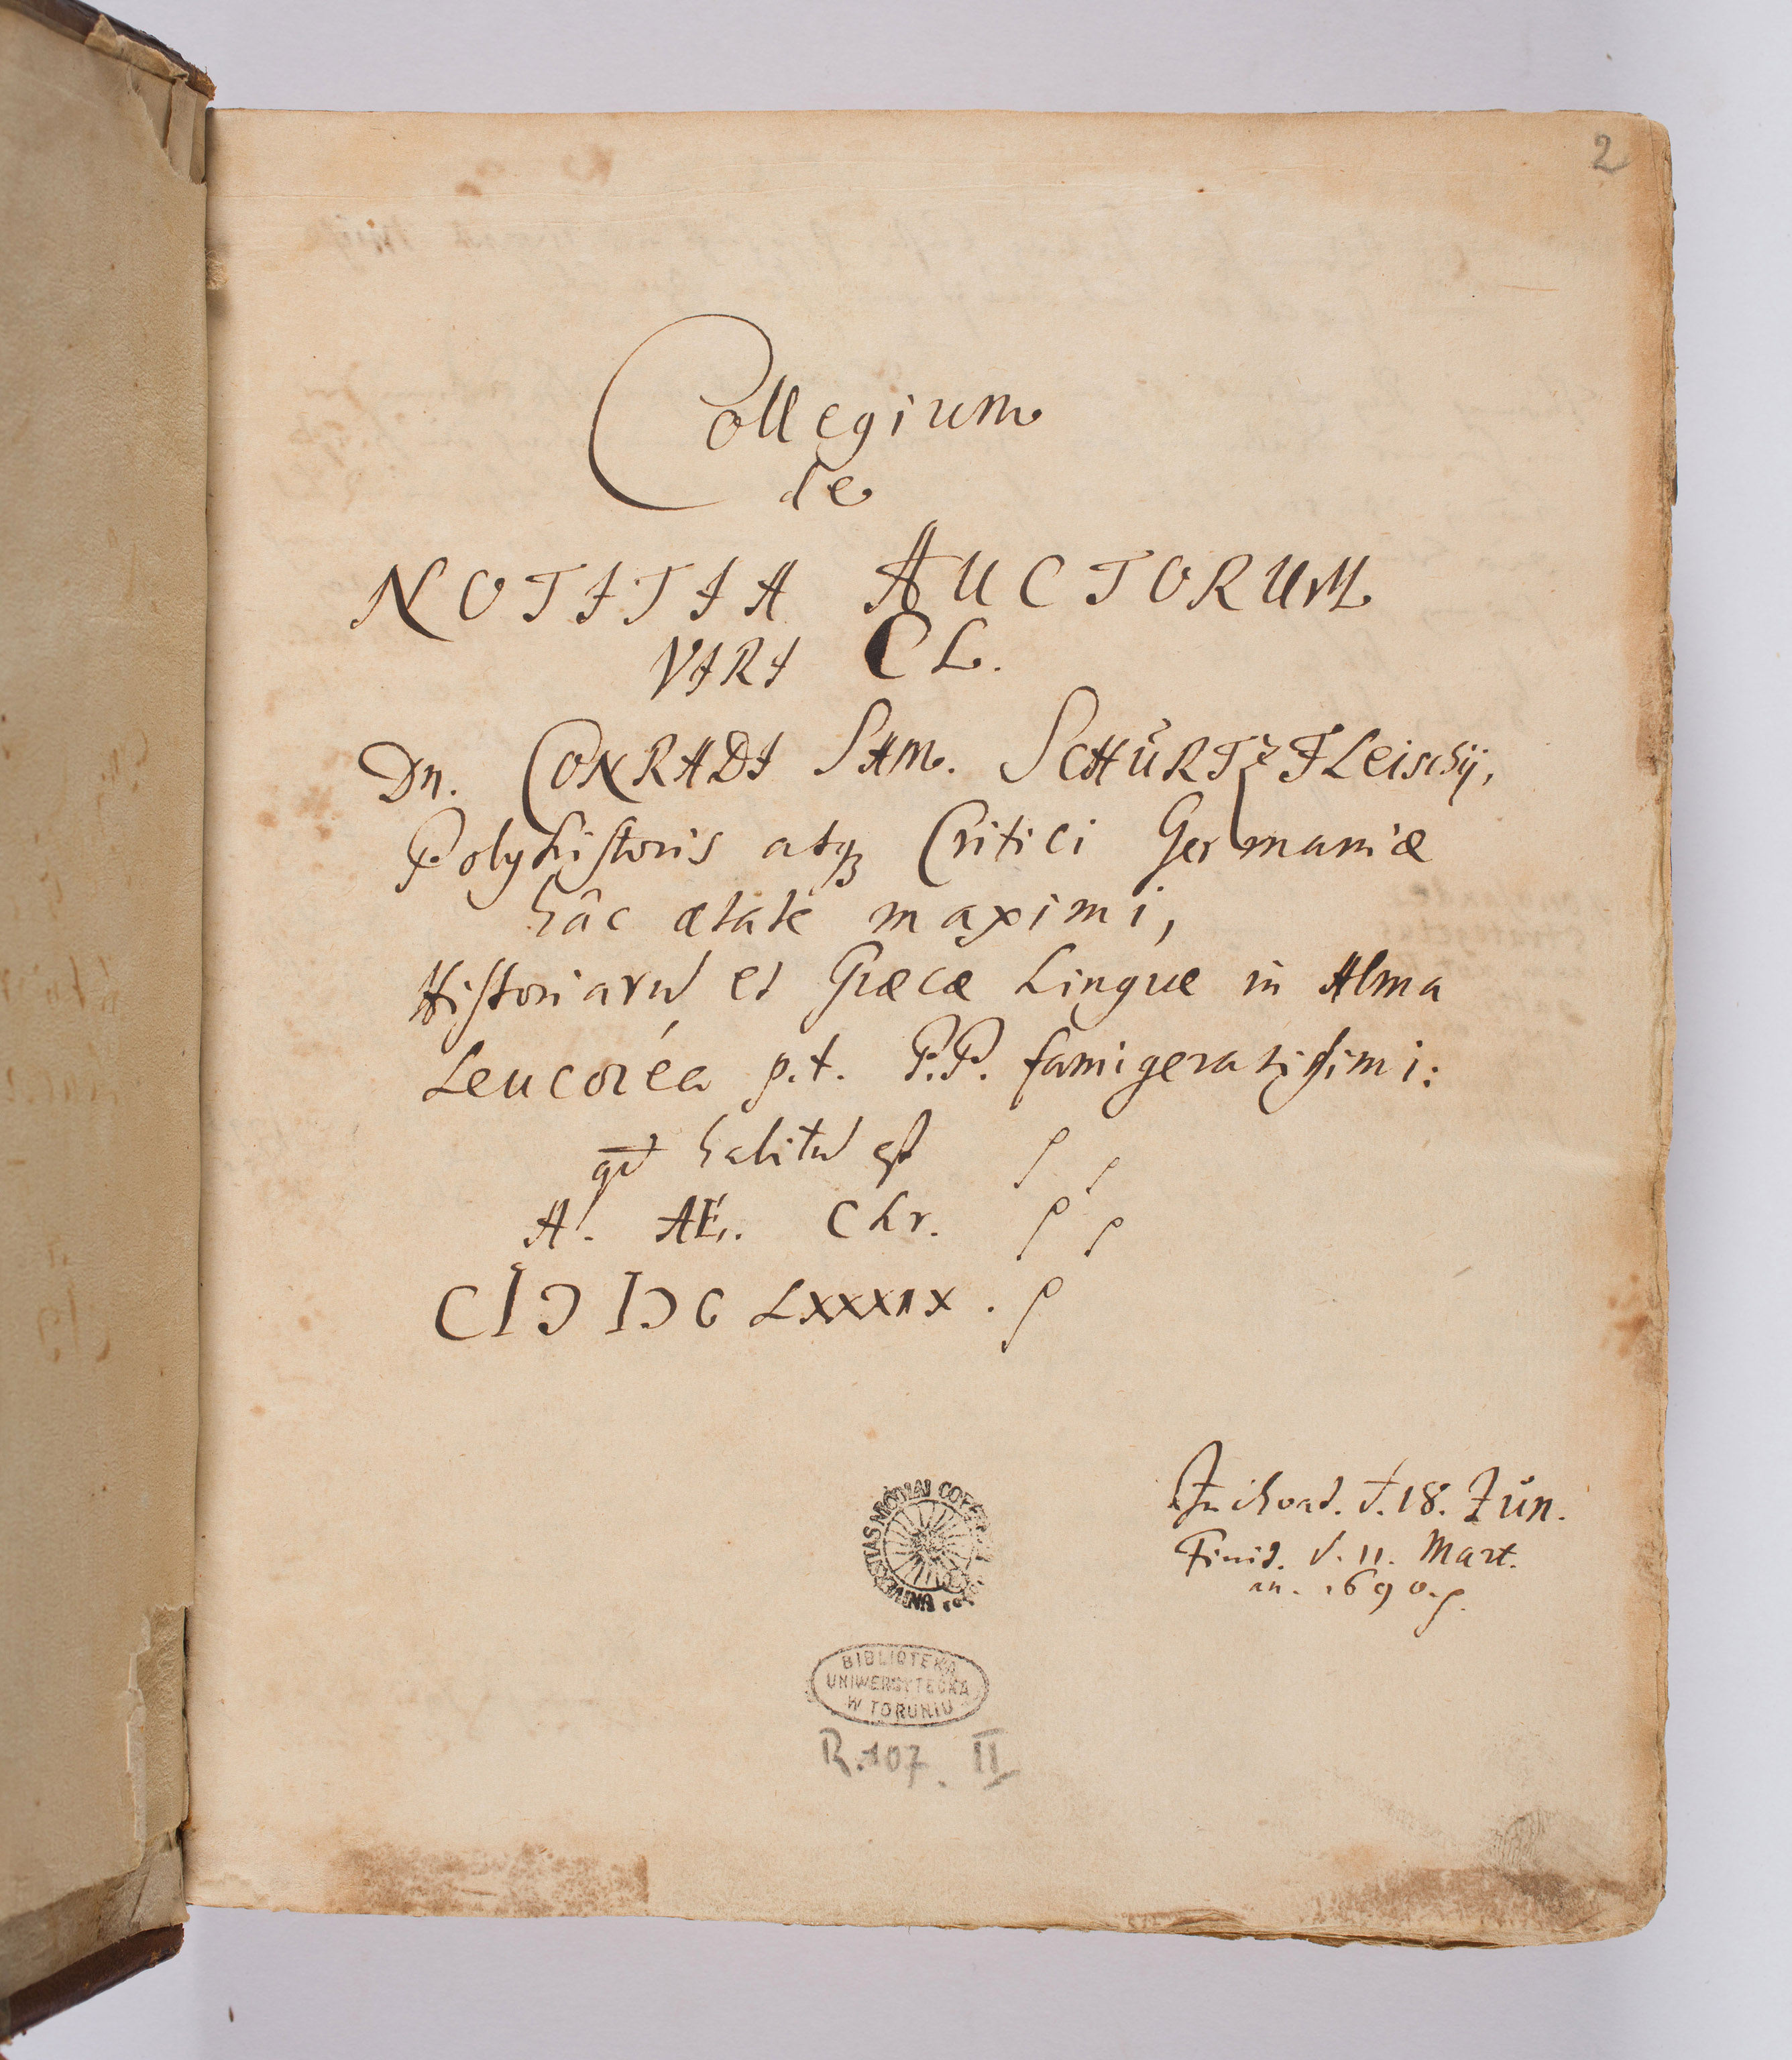 2
Collegium
de
NOTITIA AUCTORUM
VIRI CL.
Dn. CONRADI SAM. SCHÜRTZFLeischij,
Polyhistoris atqꝫ Critici Germaniæ
hâc ætate maximi,
Historiarū et Græcæ Linguæ in Alma
Leucoréa p.t. P.P. famigeratissimi:
qd habitū est
A. AE. Chr.
CIƆ IƆC LXXXIX.
Inchoat. d. 18. Jun.
Finit. d. 11. Mart.
an. 1690.
UNIVERSITAS NICOLAI
BIBLIOTEKA
UNIWERSYTECKA
W TORUNIU
R.107. II